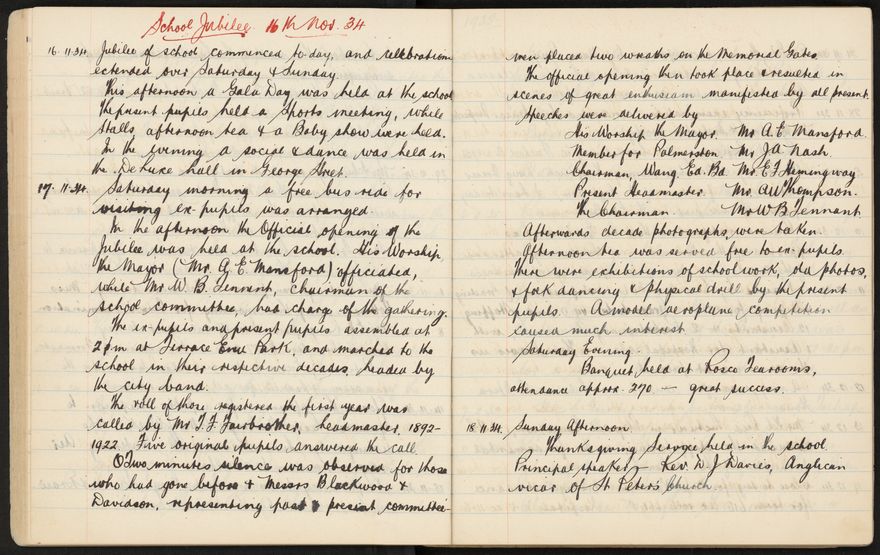 School Jubilee 16th Nov. 34
16.11.34. Jubilee of school commenced to-day, and celebrations
extended over Saturday & Sunday.
This afternoon a Gala Day was held at the school
The present pupils held a Sports meeting, while
stalls, afternoon tea & a Baby show were held.
In the evening a social & dance was held in
the De Luxe hall in George Street.
17.11.34. Saturday morning a free bus ride for
visiting ex-pupils was arranged.
In the afternoon the Official opening of the
Jubilee was held at the school. His Worship
the Mayor (Mr. A. E. Mansford) officiated,
while Mr W. B. Tennent, chairman of the
school committee, had charge of the gathering.
The ex-pupils and present pupils assembled at
2 pm at Terrace End Park, and marched to the
school in their respective decades, headed by
the city band.
The roll of those registered the first year was
called by Mr J. F. Fairbrother, headmaster, 1892-
1922. Five original pupils answered the call.
Two minutes silence was observed for those
who had gone before & Messrs Blackwood &
Davidson, representing past & present committee-
men placed two wreaths on the Memorial Gates.
The official opening then took place & resulted in
scenes of great enthusiasm manifested by all present.
Speeches were delivered by
His Worship the Mayor. Mr A. E Mansford.
Member for Palmerston Mr J A Nash.
Chairman, Wang. Ed. Bd. Mr. E F Hemingway
Present Headmaster. Mr. A W Thompson.
The Chairman Mr W B Tennant.
Afterwards decade photographs were taken.
Afternoon tea was served free to ex-pupils.
There were exhibitions of school work, old photos,
& folk dancing & physical drill by the present
pupils. A model aeroplane competition
caused much interest.
Saturday Evening.
Banquet, held at Rosco Tearooms,
attendance approx. 270 — great success.
18.11.34. Sunday Afternoon
Thanksgiving Service held in the school
Principal speaker — Rev. W J Davies, Anglican
vicar of St Peter's Church.